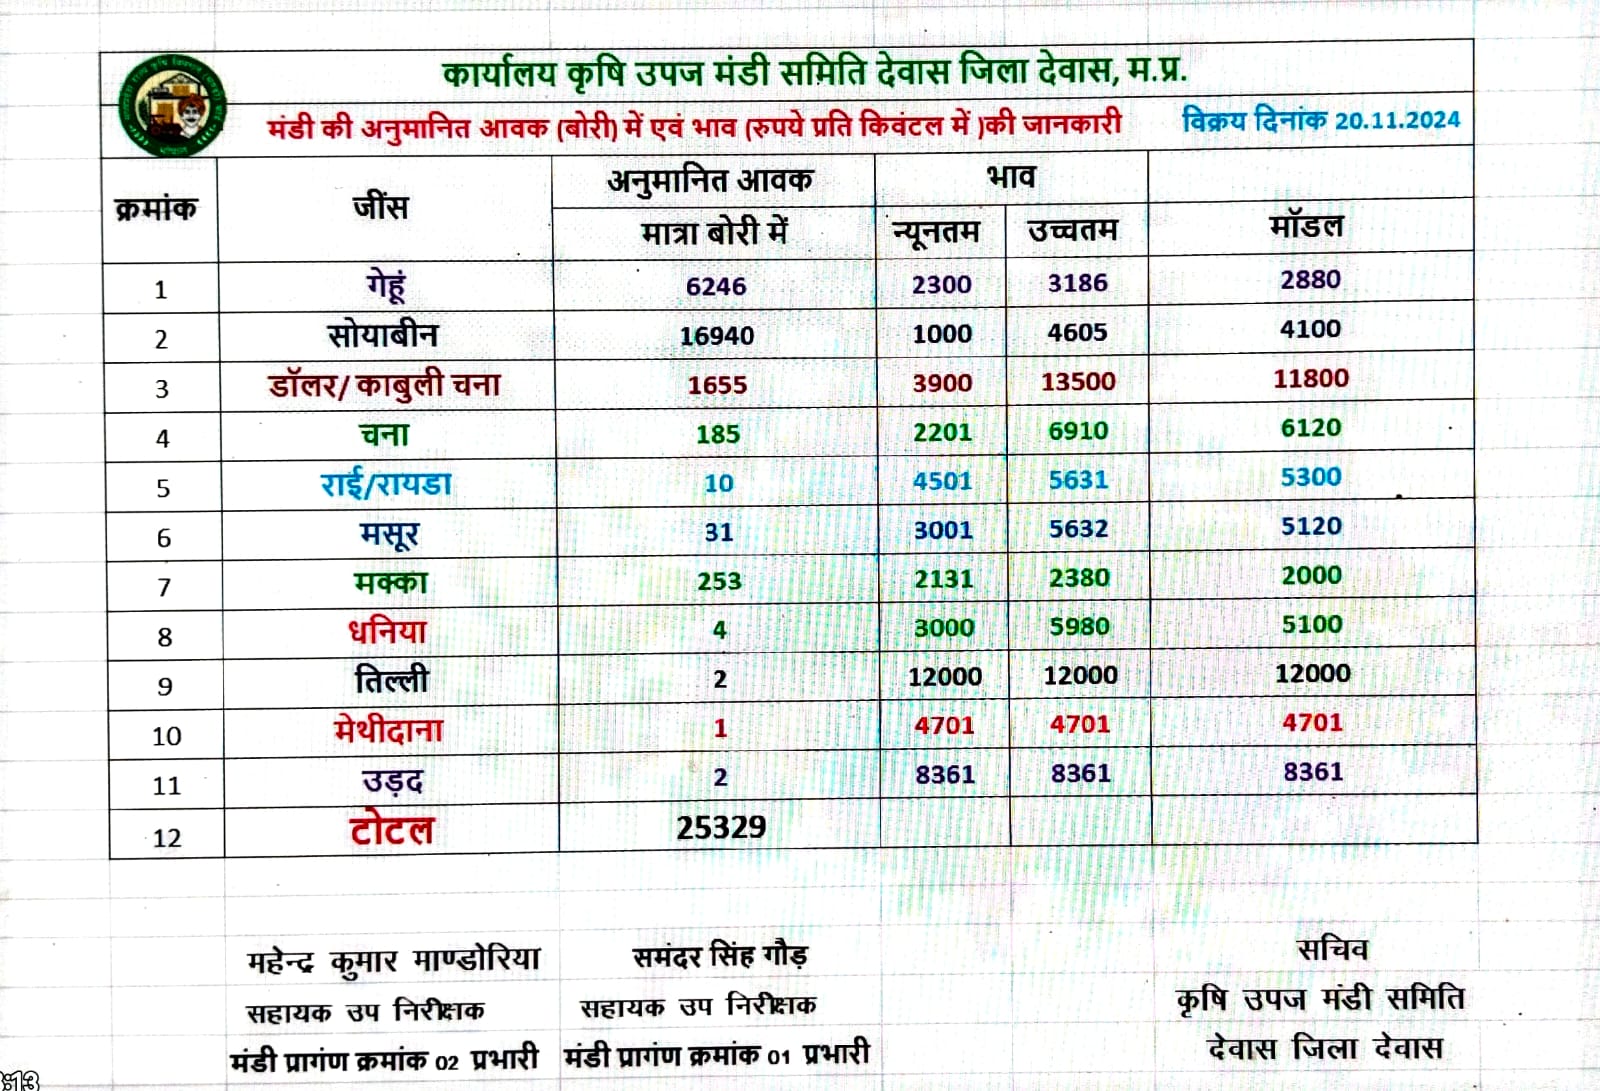 कार्यालय कृषि उपज मंडी समिति देवास जिला देवास, म.प्र.
मंडी की अनुमानित आवक (बोरी) में एवं भाव (रुपये प्रति किवंटल में )की जानकारी विक्रय दिनांक 20.11.2024
क्रमांक जींस अनुमानित आवक भाव
मात्रा बोरी में न्यूनतम उच्चतम मॉडल
1 गेहूं 6246 2300 3186 2880
2 सोयाबीन 16940 1000 4605 4100
3 डॉलर/ काबुली चना 1655 3900 13500 11800
4 चना 185 2201 6910 6120
5 राई/रायडा 10 4501 5631 5300
6 मसूर 31 3001 5632 5120
7 मक्का 253 2131 2380 2000
8 धनिया 4 3000 5980 5100
9 तिल्ली 2 12000 12000 12000
10 मेथीदाना 1 4701 4701 4701
11 उड़द 2 8361 8361 8361
12 टोटल 25329
महेन्द्र कुमार माण्डोरिया समंदर सिंह गौड़ सचिव
सहायक उप निरीक्षक सहायक उप निरीक्षक कृषि उपज मंडी समिति
मंडी प्रागंण क्रमांक 02 प्रभारी मंडी प्रागंण क्रमांक 01 प्रभारी देवास जिला देवास